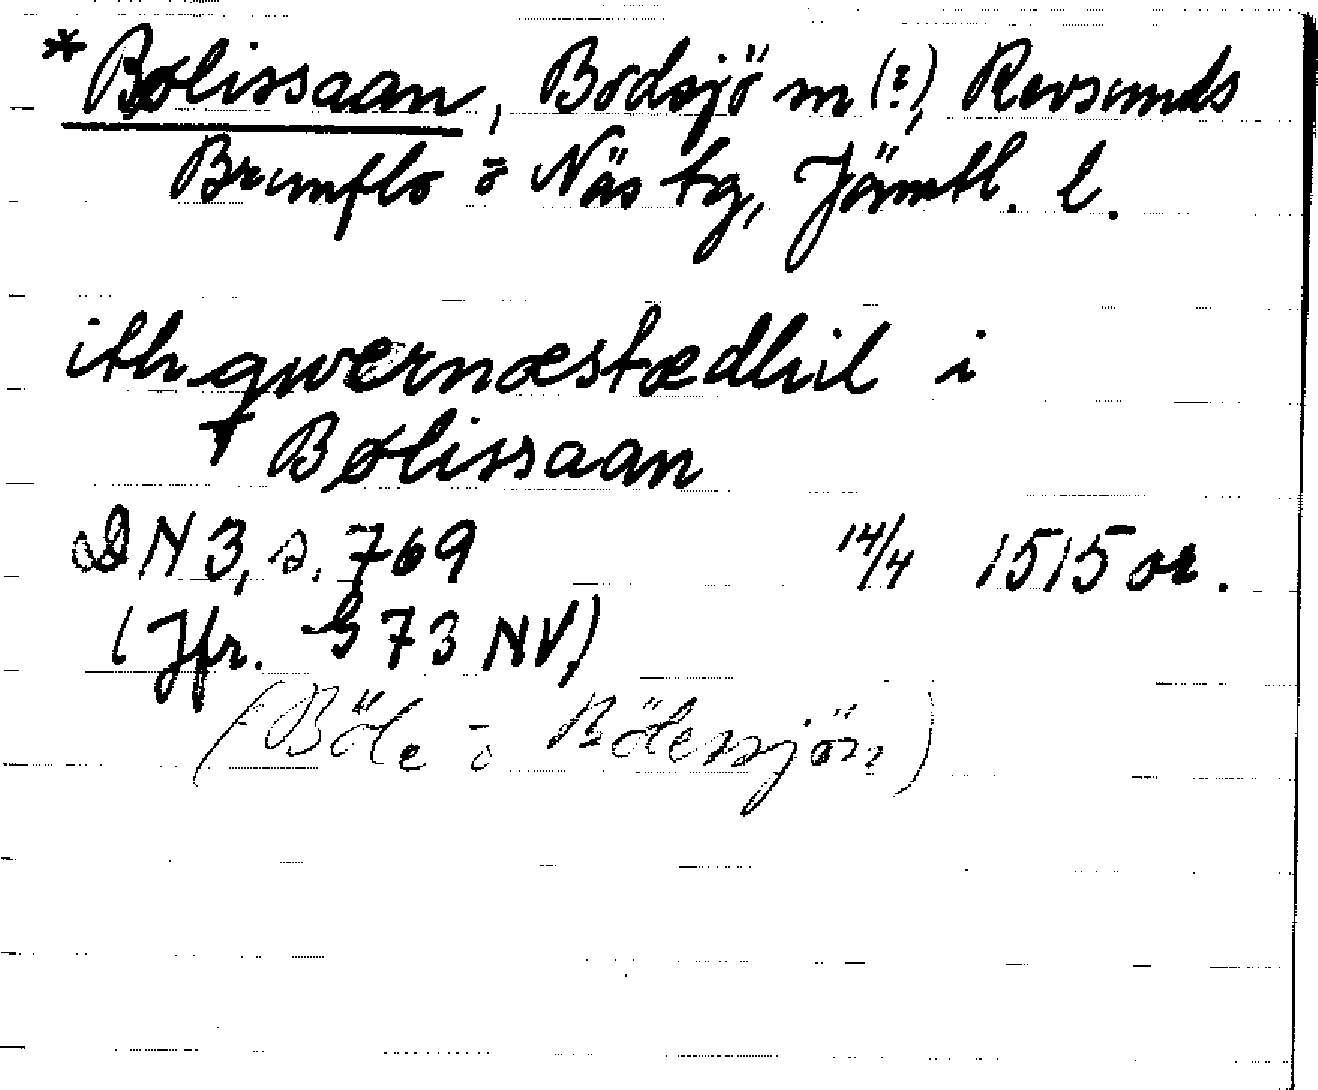 *Bølissaan, Bodsjö sn (?), Revsunds
Brunflo o Näs tg, Jämtl. l.
ith qwernæstædhil i
Bølissaan
DN 3, s. 769 14/4 1515 or.
(Jfr. G 73 NV,)
(Böle o Bölessjön)